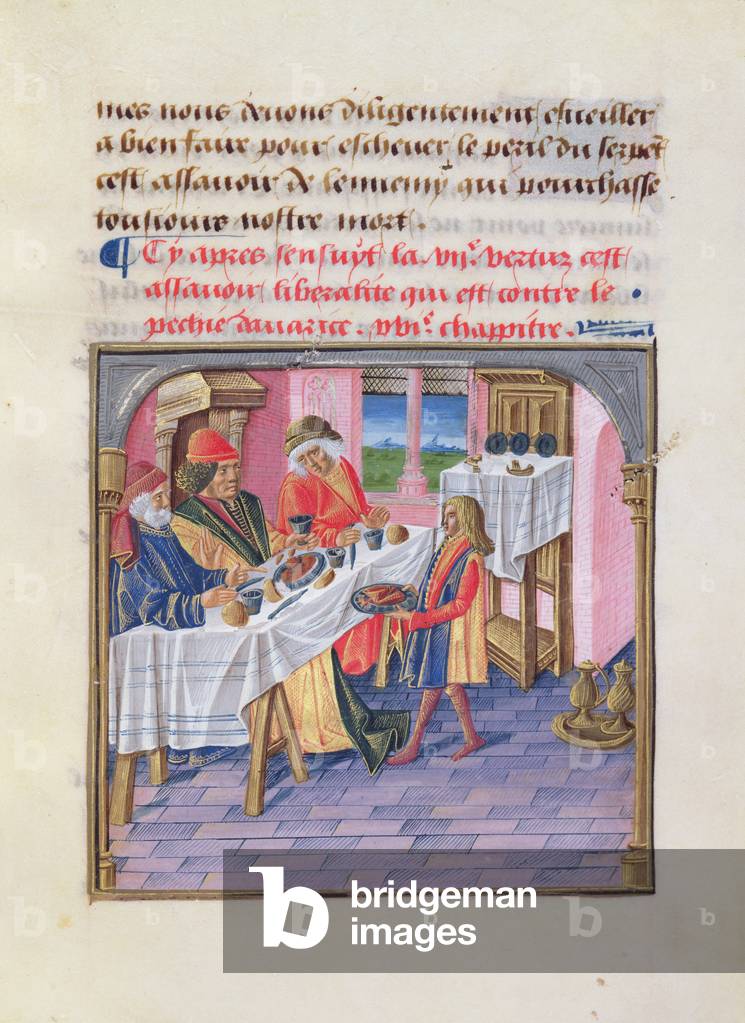 mes nous deuons diligentement esueiller
a bien faire pour escheuer le peril du serpet
cest assauoir de lennemy qui pourchasse
tousiours nostre mort.
Cy apres sensuyt la .vije. vertuz cest
assauoir liberalite qui est contre le
pechie dauarice. xviije. chappitre.
b bridgeman
images